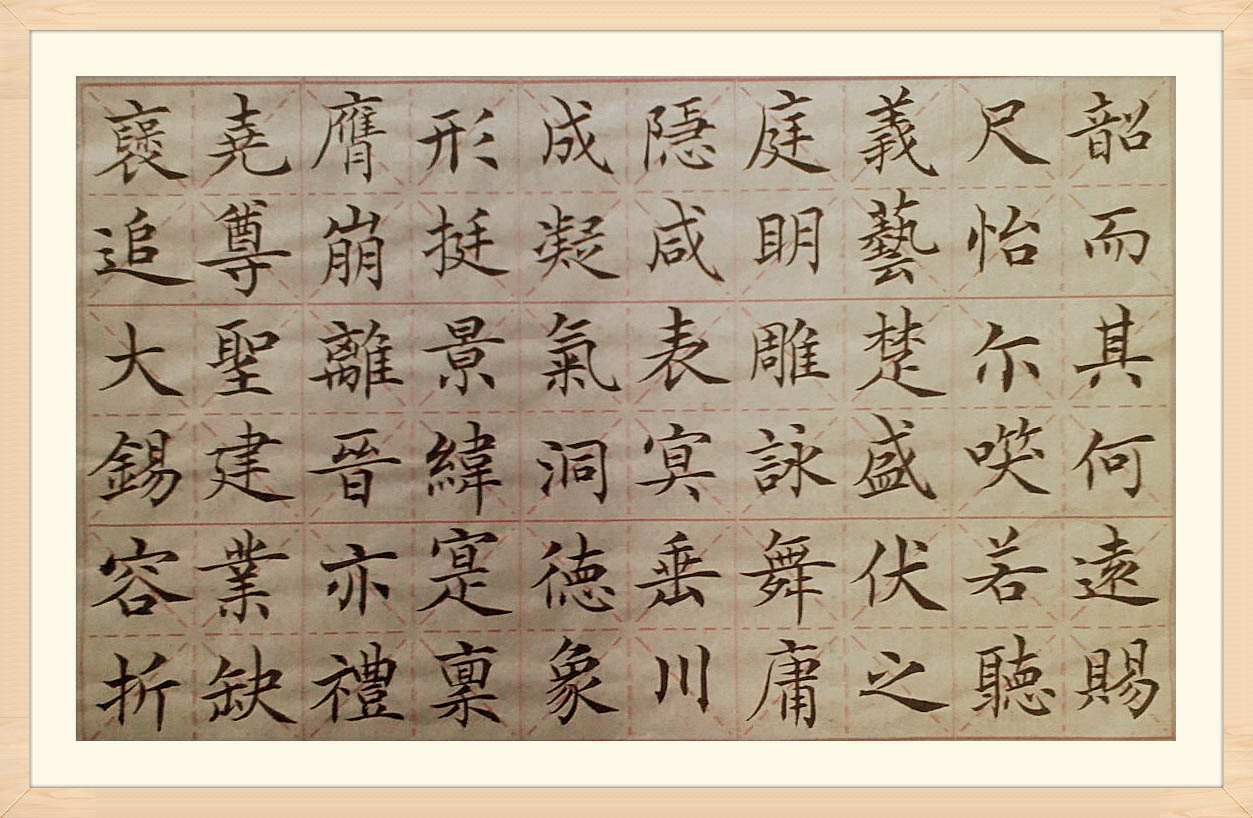 韶而其何遠賜
尺怡尒㗛若聽
義藝楚盛伏之
庭眀雕詠舞庸
隱咸表冥垂川
成凝氣洞德象
形挺景緯寔禀
膺崩離晉亦禮
堯尊聖建業缺
褒追大錫容折